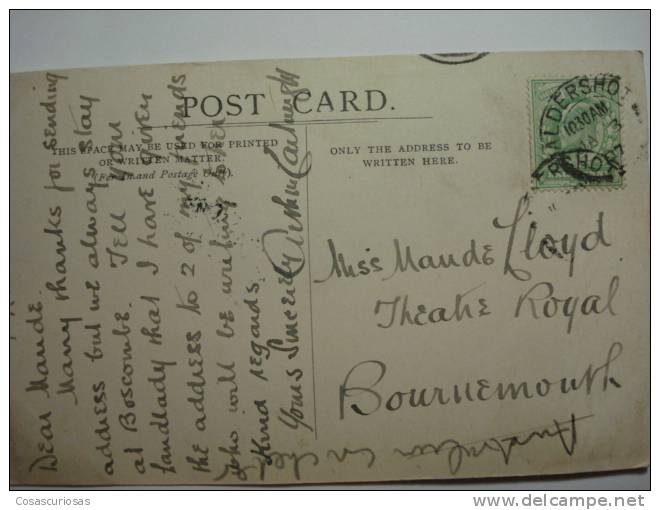 POST CARD.
THIS SPACE MAY BE USED FOR PRINTED
OR WRITTEN MATTER.
(For Inland Postage Only).
ONLY THE ADDRESS TO BE
WRITTEN HERE.
ALDERSHOT
10.30AM
Miss Maude Lloyd
Theatre Royal
Bournemouth
Dear Maude.
Many thanks for sending
address but we always stay
at Boscombe. Tell your
landlady that I have given
the address to 2 of my friends
who will be writing to her
Kind regards
Yours Sincerely Arthur
Cosascuriosas
www.delcampe.net